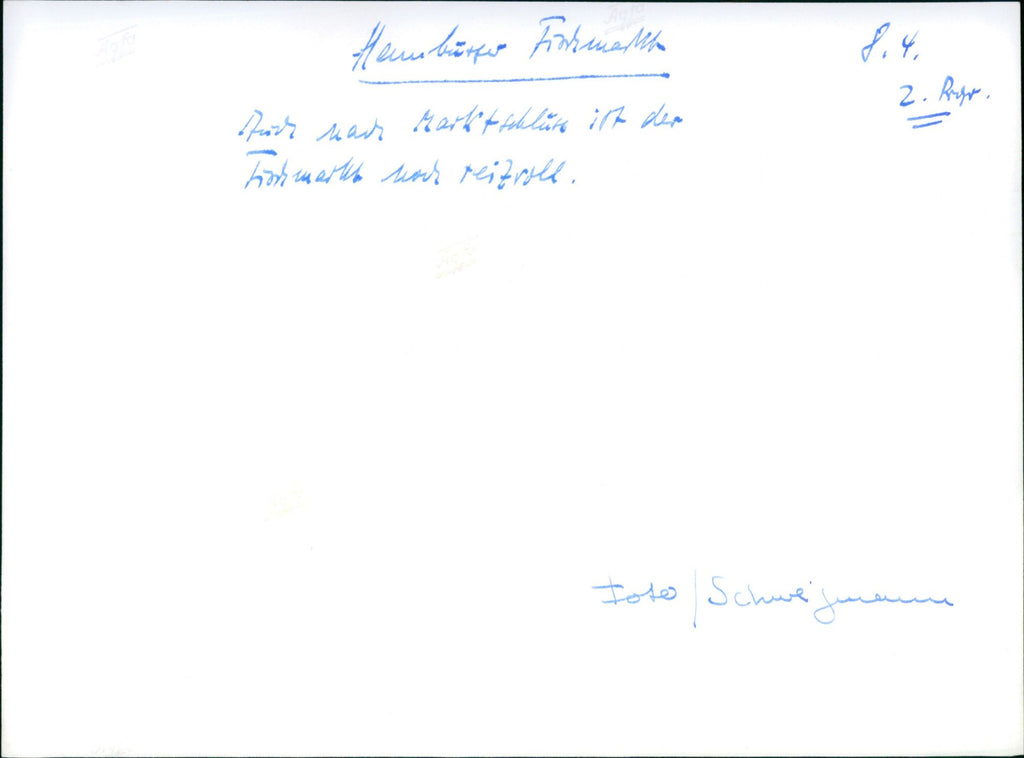 Hamburger Fischmarkt
8. 4.
2. Progr.
Auch nach Marktschluss ist der
Fischmarkt noch reizvoll.
Agfa
Agfa
Agfa
Foto / Schweigmann